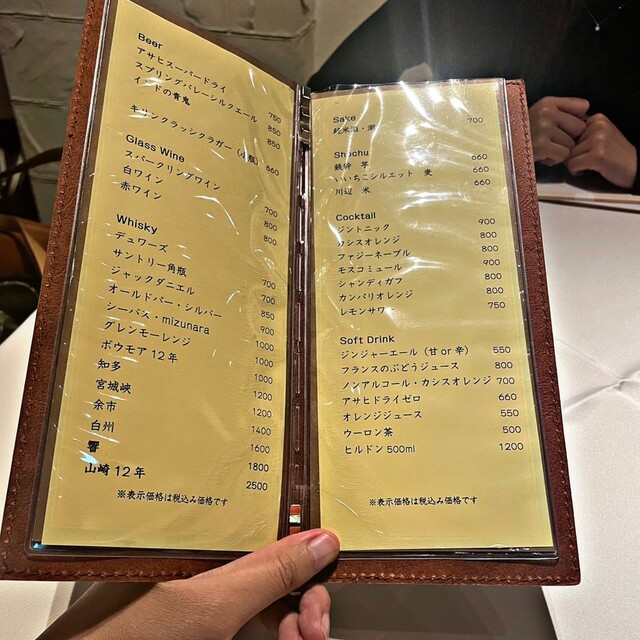 Beer
アサヒスーパードライ 750
スプリングバレーシルクエール 850
インドの青鬼 850
キリンクラシックラガー（小瓶） 660
Glass Wine
スパークリングワイン 700
白ワイン 800
赤ワイン 800
Whisky
デュワーズ 700
サントリー角瓶 700
ジャックダニエル 850
オールドパー・シルバー 900
シーバス・mizunara 1000
グレンモーレンジ 1000
ボウモア12年 1000
知多 1200
宮城峡 1200
余市 1400
白州 1600
響 1800
山崎12年 2500
※表示価格は税込み価格です
Sake
純米酒・ 700
Shochu
鉄幹 芋 660
いいちこシルエット 麦 660
川辺 米 660
Cocktail
ジントニック 900
カシスオレンジ 800
ファジーネーブル 800
モスコミュール 900
シャンディガフ 800
カンパリオレンジ 800
レモンサワー 750
Soft Drink
ジンジャーエール（甘 or 辛） 550
フランスのぶどうジュース 800
ノンアルコール・カシスオレンジ 700
アサヒドライゼロ 660
オレンジジュース 550
ウーロン茶 500
ヒルドン500ml 1200
※表示価格は税込み価格です